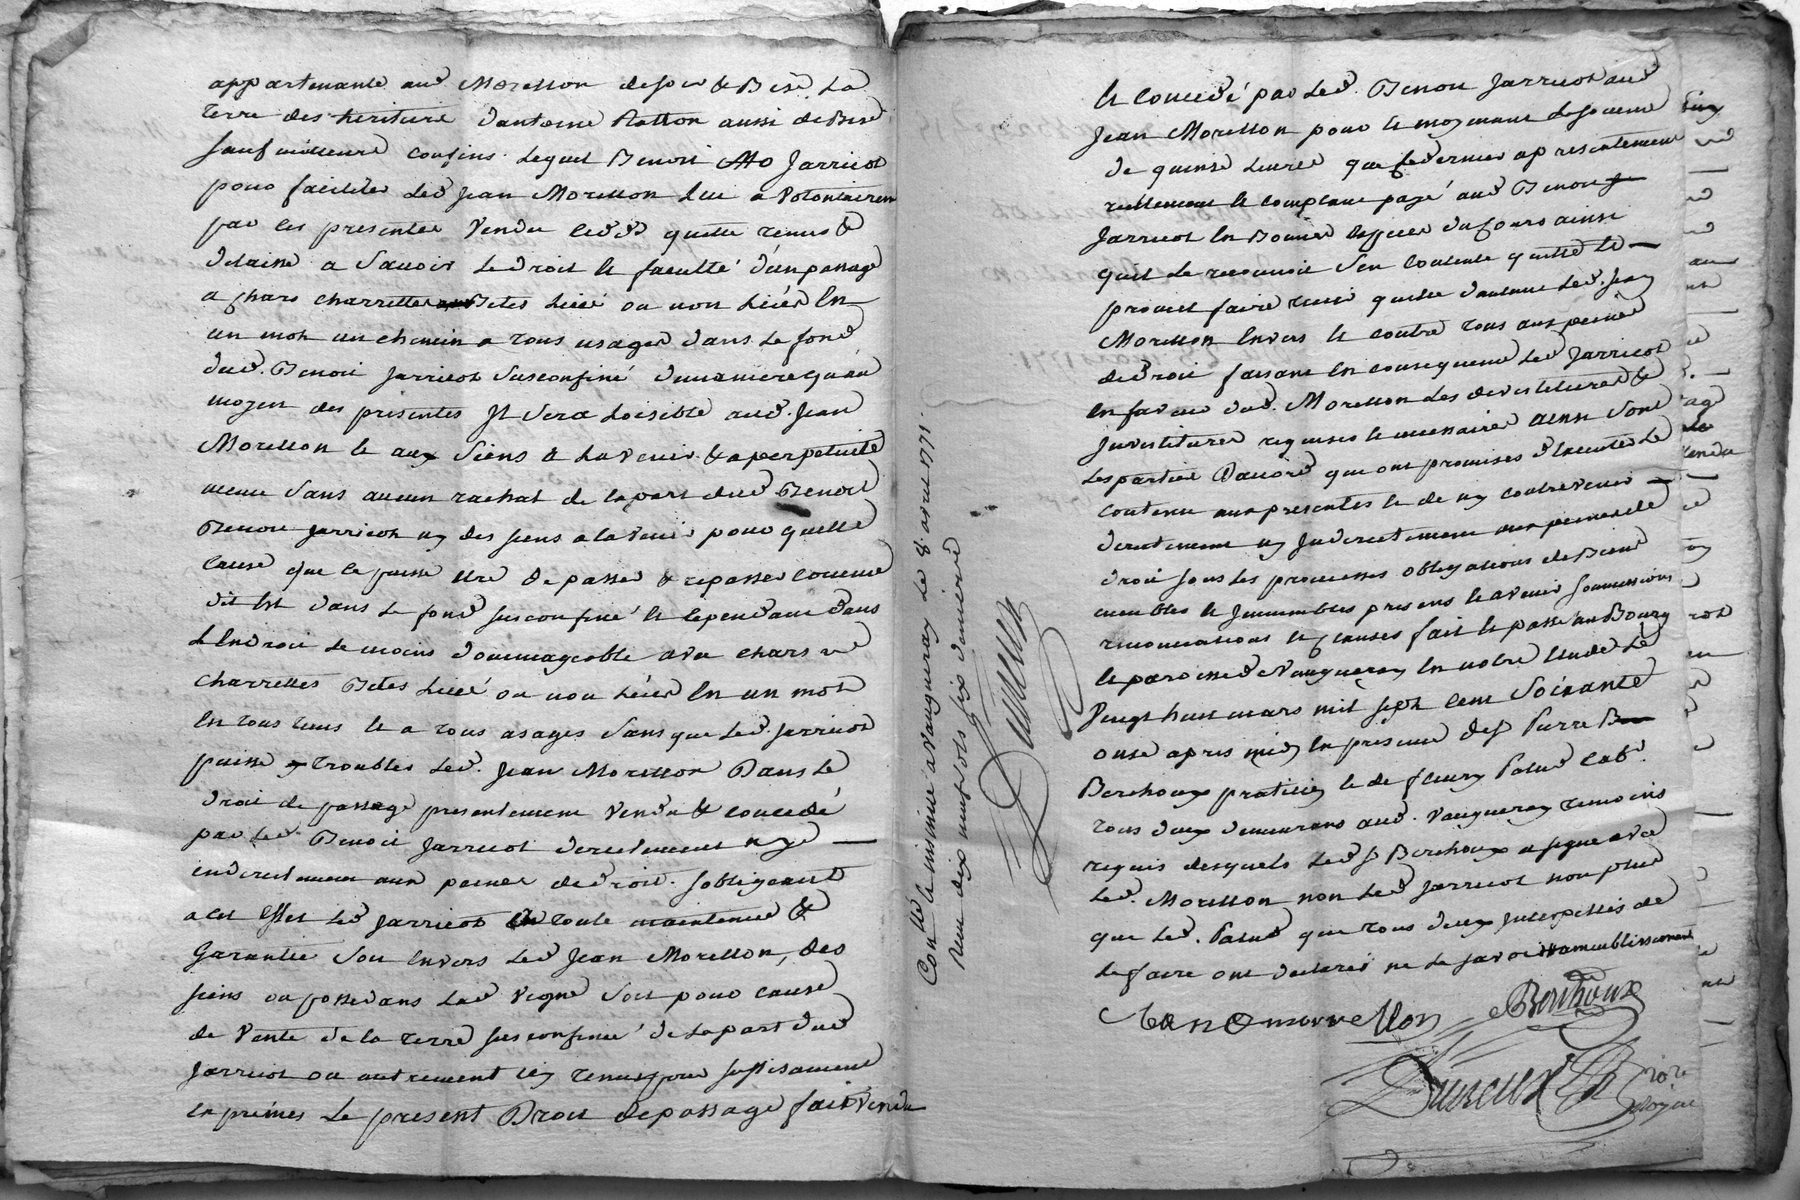 appartenante aud Morellon desoir & Bise La
terre des heritiers d'antoine Ratton aussi de Bise
sauf meilleurs confins. Lequel Benoit Jarricot
pour faciliter Led Jean Morellon Lui a Volontairem
par ces presentes Vendu cedé quitté remis &
delaissé a Savoir Le droit et faculté d'un passage
a chars charrettes Betes Liées ou non Liées En
un mot un chemin a tous usages dans Le fond
dud. Benoit Jarricot Susconfiné demaniere qu'au
moyen des presentes Il Sera Loisible aud. Jean
Morellon et aux Siens a Lavenir & a perpetuité
meme Sans aucun rachat de la part dud Benoit
Benoit Jarricot ny des siens a lavenir pour quelle
cause que ce puisse etre de passer & repasser comme
dit Est dans Le fond susconfiné et cependant dans
L'Endroit Le moins dommageable avec chars
charrettes Betes Liées ou non Liées En un mot
En tous tems et a tous usages Sans que Led. Jarricot
puisse troubler Led. Jean Morellon Dans Le
droit de passage presentement Vendu & concedé
par Led Benoit Jarricot directement ny
indirectement aux peines de droit. s'obligeant
a cet Effet Led Jarricot En toute maintenue &
Garantie Soit Envers Led Jean Morellon, des
siens ou possedans Lad Vigne Soit pour cause
de Vente de la terre susconfinée de La part dud
Jarricot ou autrement icy tenus pour suffisament
exprimés Le present Droit de passage fait Vendu
et concedé par Led. Benoit Jarricot aud
Jean Morellon pour et moyenant La somme
de quinse Livres que ce dernier a presentement
reellement et comptant payé aud Benoit
Jarricot En Bonnes Especes du cours ainsi
quil Le reconnoit S'en contente quitte et
promet faire tenir quitte d'autant Led. Jean
Morellon Envers et contre tous aux peines
de droit faisant En consequence Led Jarricot
En faveur dud. Morellon Les devestitures &
Investitures requises et necessaires ainsi Sont
Les parties D'accord que ont promises d'Executer Le
contenu aux presentes et de ny contrevenir
directement ny Indirectement aux peines de
droit sous Les promesses obligations de Biens
meubles et Immeubles presens et avenir soumissions
renonciations et clauses fait et passé au Bourg
et paroisse de Vaugneray En notre Etude Le
Vingt huit mars mil sept cent Soixante
onse apres midy En presence des Sr Pierre
Berchoux praticien et de fleury Palud Lab.r
tous deux demeurans aud. Vaugneray temoins
requis desquels Led Sr Berchoux a signé avec
Led. Morellon non Led Jarricot non plus
que Led. Palud que tous deux Interpellés de
Le faire ont declarés ne Le savoir
Jean morrellon Berchoux
nore royal
Conté la minute a Vaugneray Le 8. avril 1771.
Reçu dix neuf sols six deniers